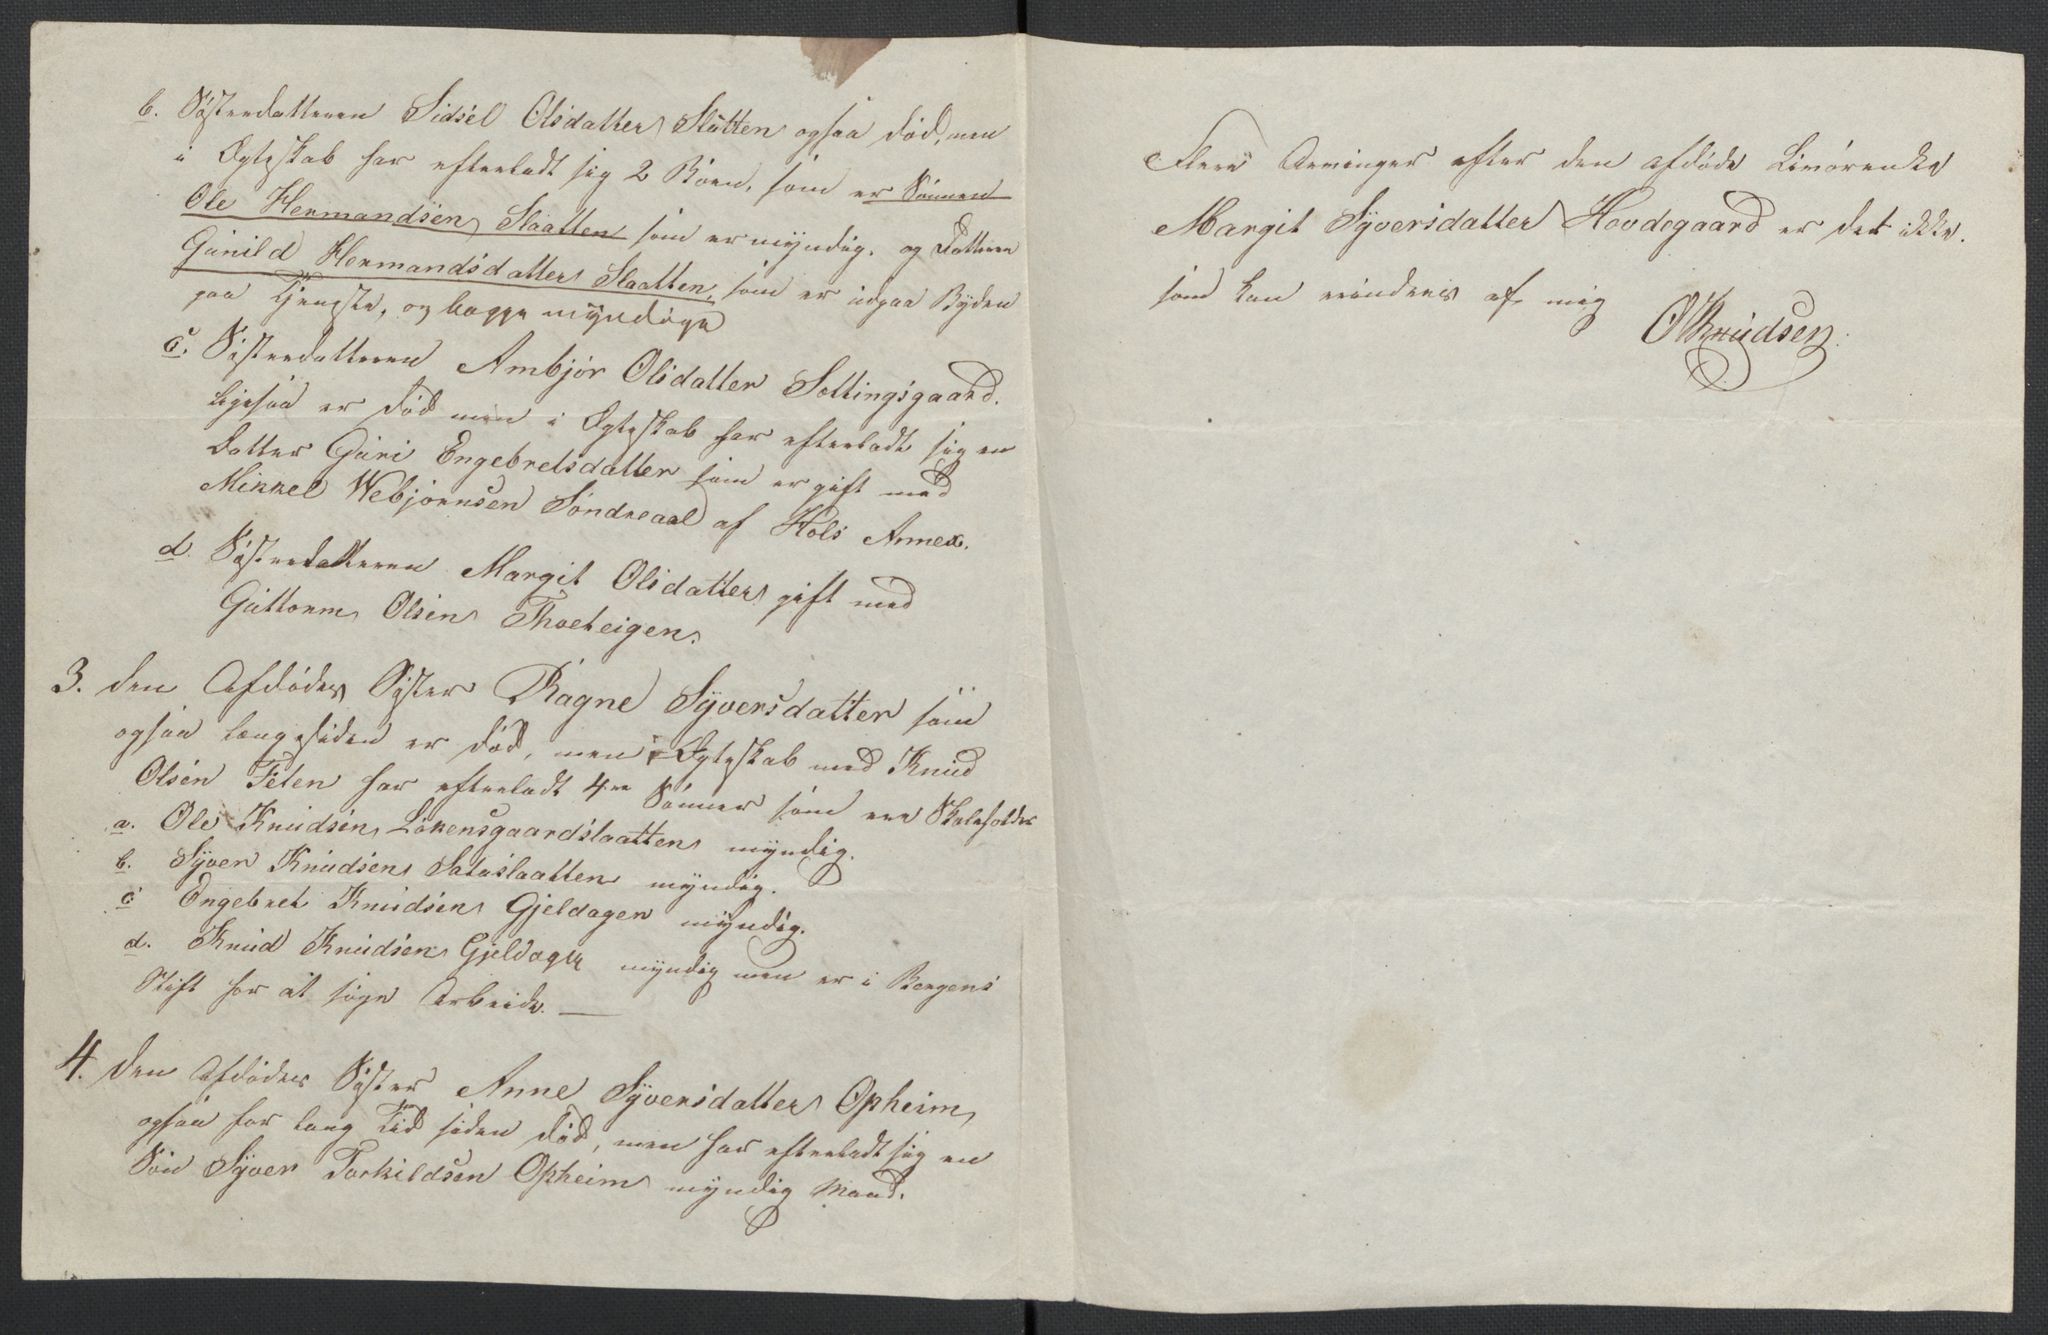 b. Søsterdatteren Sidsel Olsdatter Slåtten ogsaa død, men
i Ægteskab har efterladt sig 2 Børn, som er Sønnen
Ole Hermandsen Slaatten som er myndig. og Datteren
Gunild Hermandsdatter Slaatten, som er udpaa Byden
paa Tjeneste, og begge myndige
c. Søsterdatteren Ambjør Olsdatter Settingsgaard.
ligesaa er død men i Ægteskab har efterladt sig en
Datter Guri Engebretsdatter som er gift med
Mikkel Webjørnsen Søndreaal af Hols Annex.
d. Søsterdatteren Margit Olsdatter gift med
Guttorm Olsen Thoeteigen.
3. den Afdødes Søster Ragne Syversdatter som
ogsaa længesiden er død, men i Ægteskab med Knud
Olsen Feten har efterladt 4re Sønner som ere Skoleholder
a. Ole Knudsen Løkensgaardslaatten myndig.
b. Syver Knudsen Sataslaatten myndig.
c Engebret Knudsen Gjeldagen myndig.
d. Knud Knudsen Gjeldagen myndig men er i Bergens
Stift for at søge Arbeide. —
4. den Afdødes Søster Anne Syversdatter Opheim
ogsaa for lang Tid siden død, men har efterladt sig en
Søn Syver Torkildsen Opheim myndig Mand.
Flere Arvinger efter den afdøde Livørenke
Margit Syversdatter Hovdegaard er det ikke.
som kan erindres af mig
OKnudsen